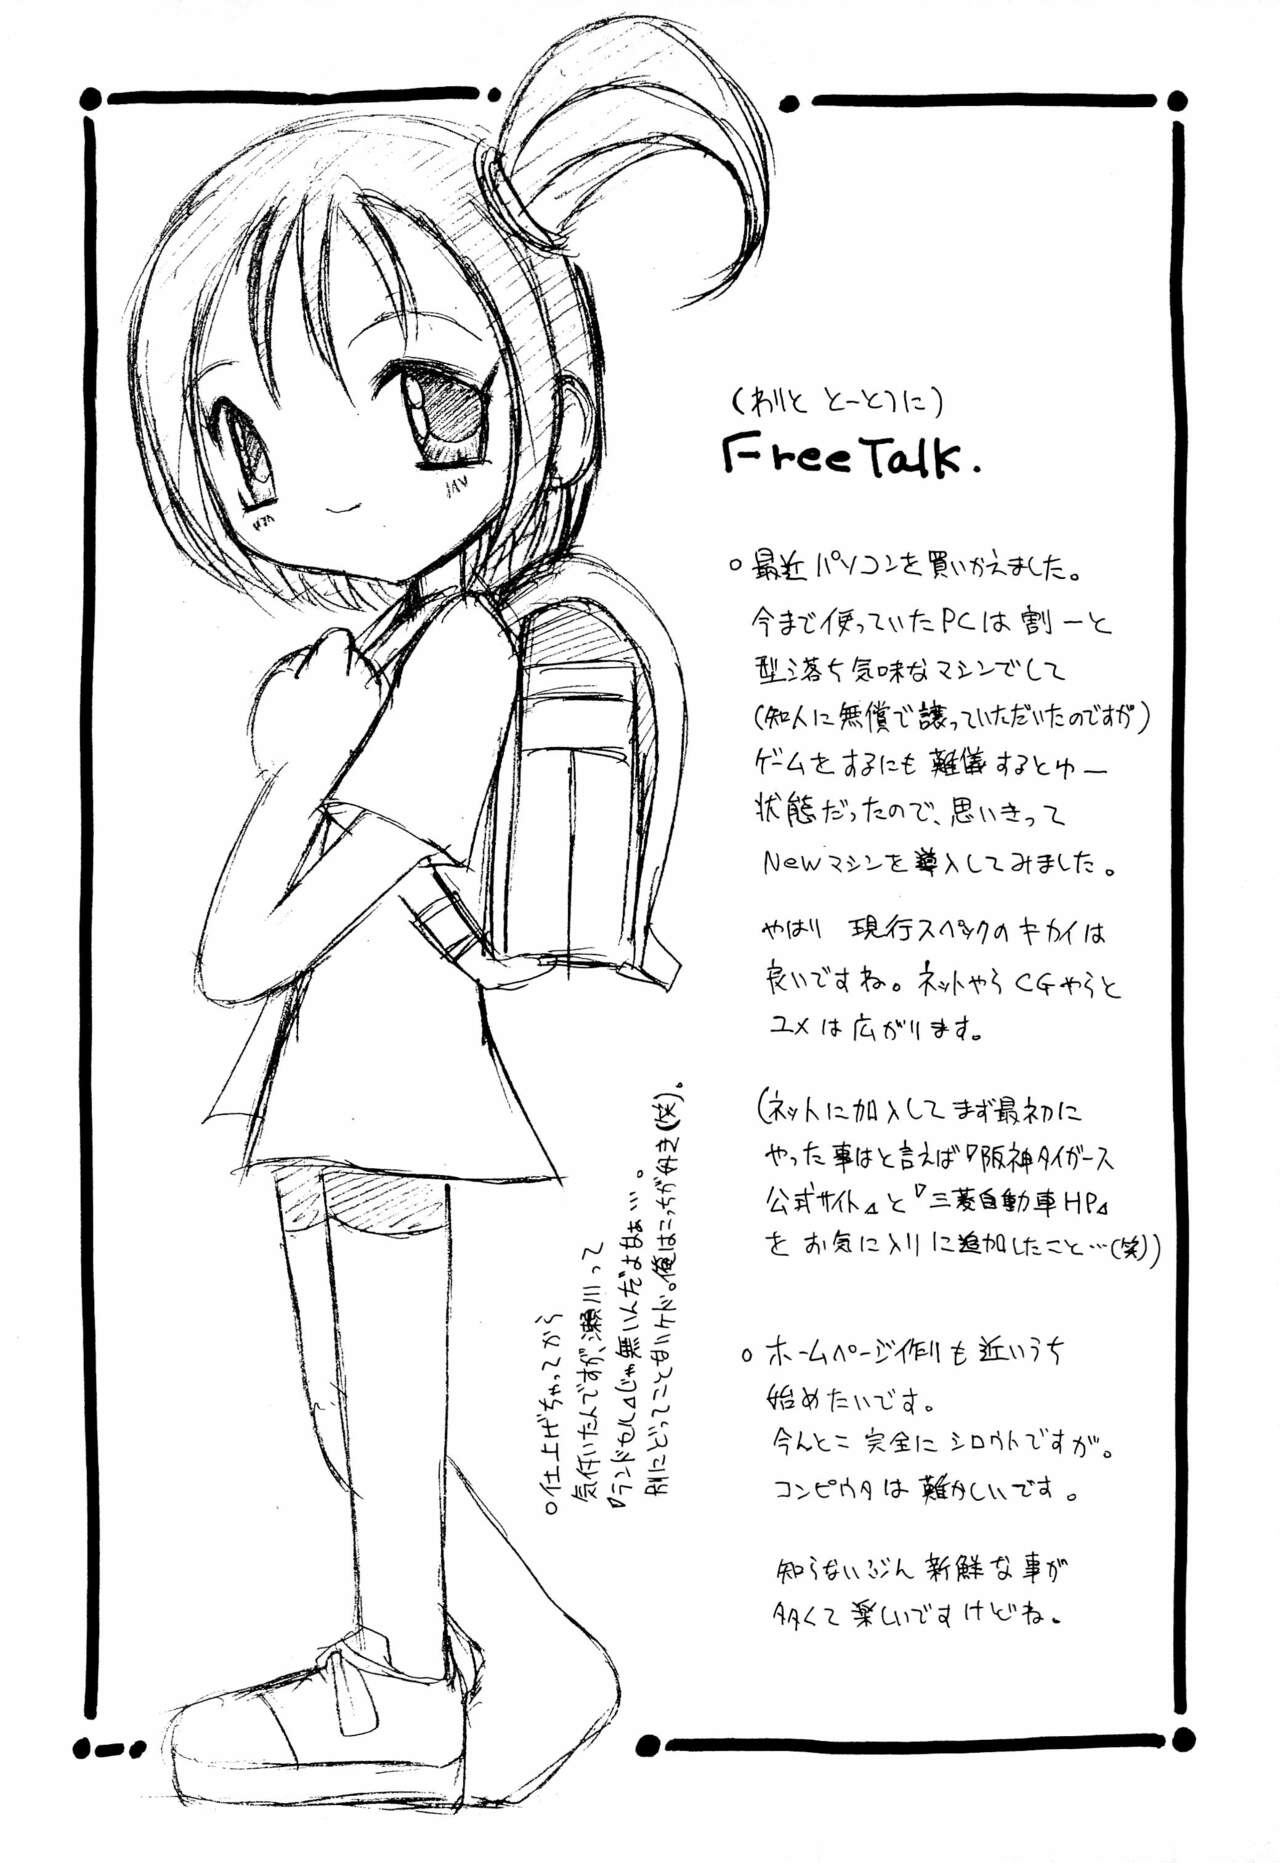 (わりと とーとつに)
Free Talk.
○最近パソコンを買いかえました。
今まで使っていたPCは割一と
型落ち気味なマシンでして
(知人に無償で譲っていただいたのですが)
ゲームをするにも難儀するとゆー
状態だったので、思いきって
Newマシンを導入してみました。
やはり 現行スペックのキカイは
良いですね。ネットやらCGやらと
ユメは広がります。
(ネットに加入してまず最初に
やった事はと言えば『阪神タイガース
公式サイト』と『三菱自動車HP』
をお気に入りに追加したこと…(笑))
○ホームページ作りも近いうち
始めたいです。
今んとこ完全にシロウトですが。
コンピウタは難かしいです。
知らないぶん新鮮な事が
多くて楽しいですけどね。
○仕上げちゃってから
気付いたんですが、瀬川って
『ランドセル』じゃ無いんだよなぁ…。
別にどってことないケド。俺はこっちが好き(笑)。